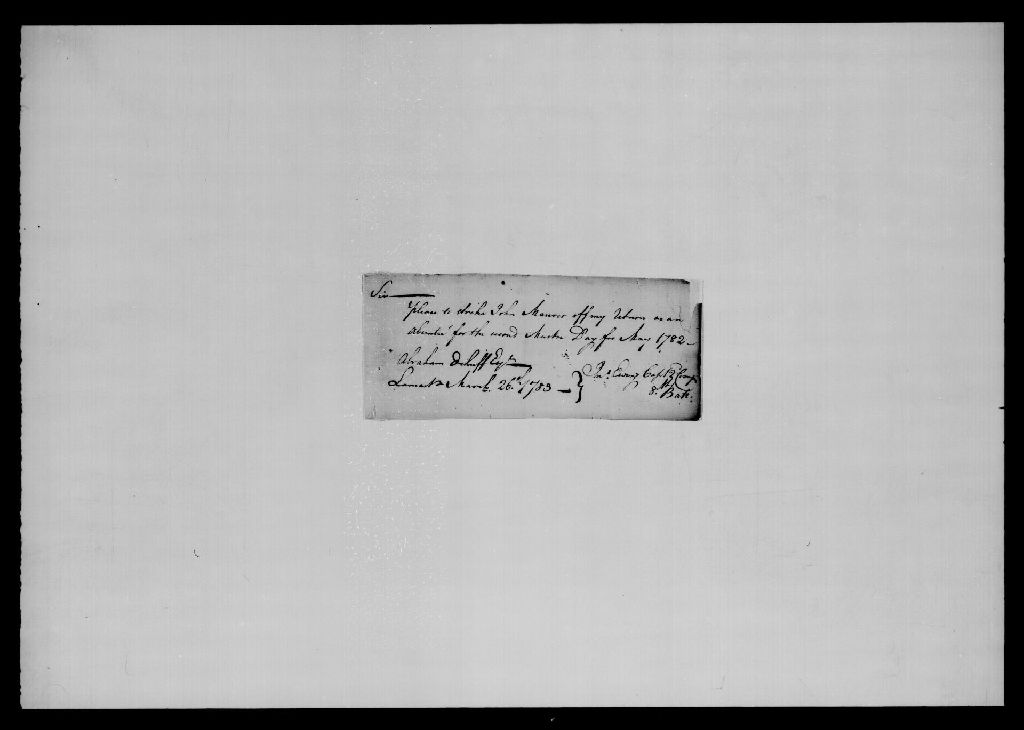 Sir
please to strike John Maurer off my return as an
absentee for the second Muster Day for May 1782
Abraham Dehuff Esqr
March 26th 1783 Jno Ewing Capt 2 Comp
8th Batt.